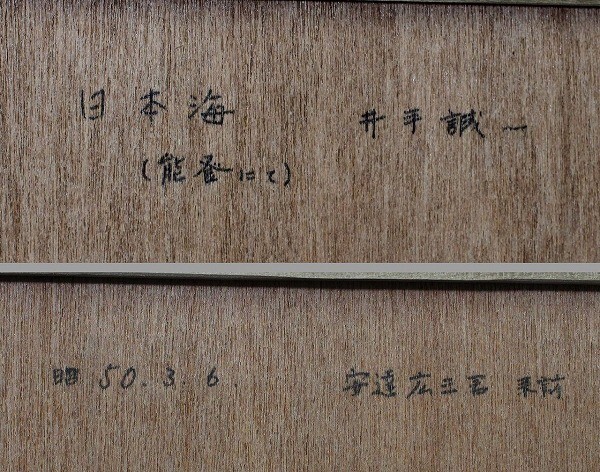 日本海 井平誠一
(能登にて)
昭 50.3.6. 安達広三 来訪